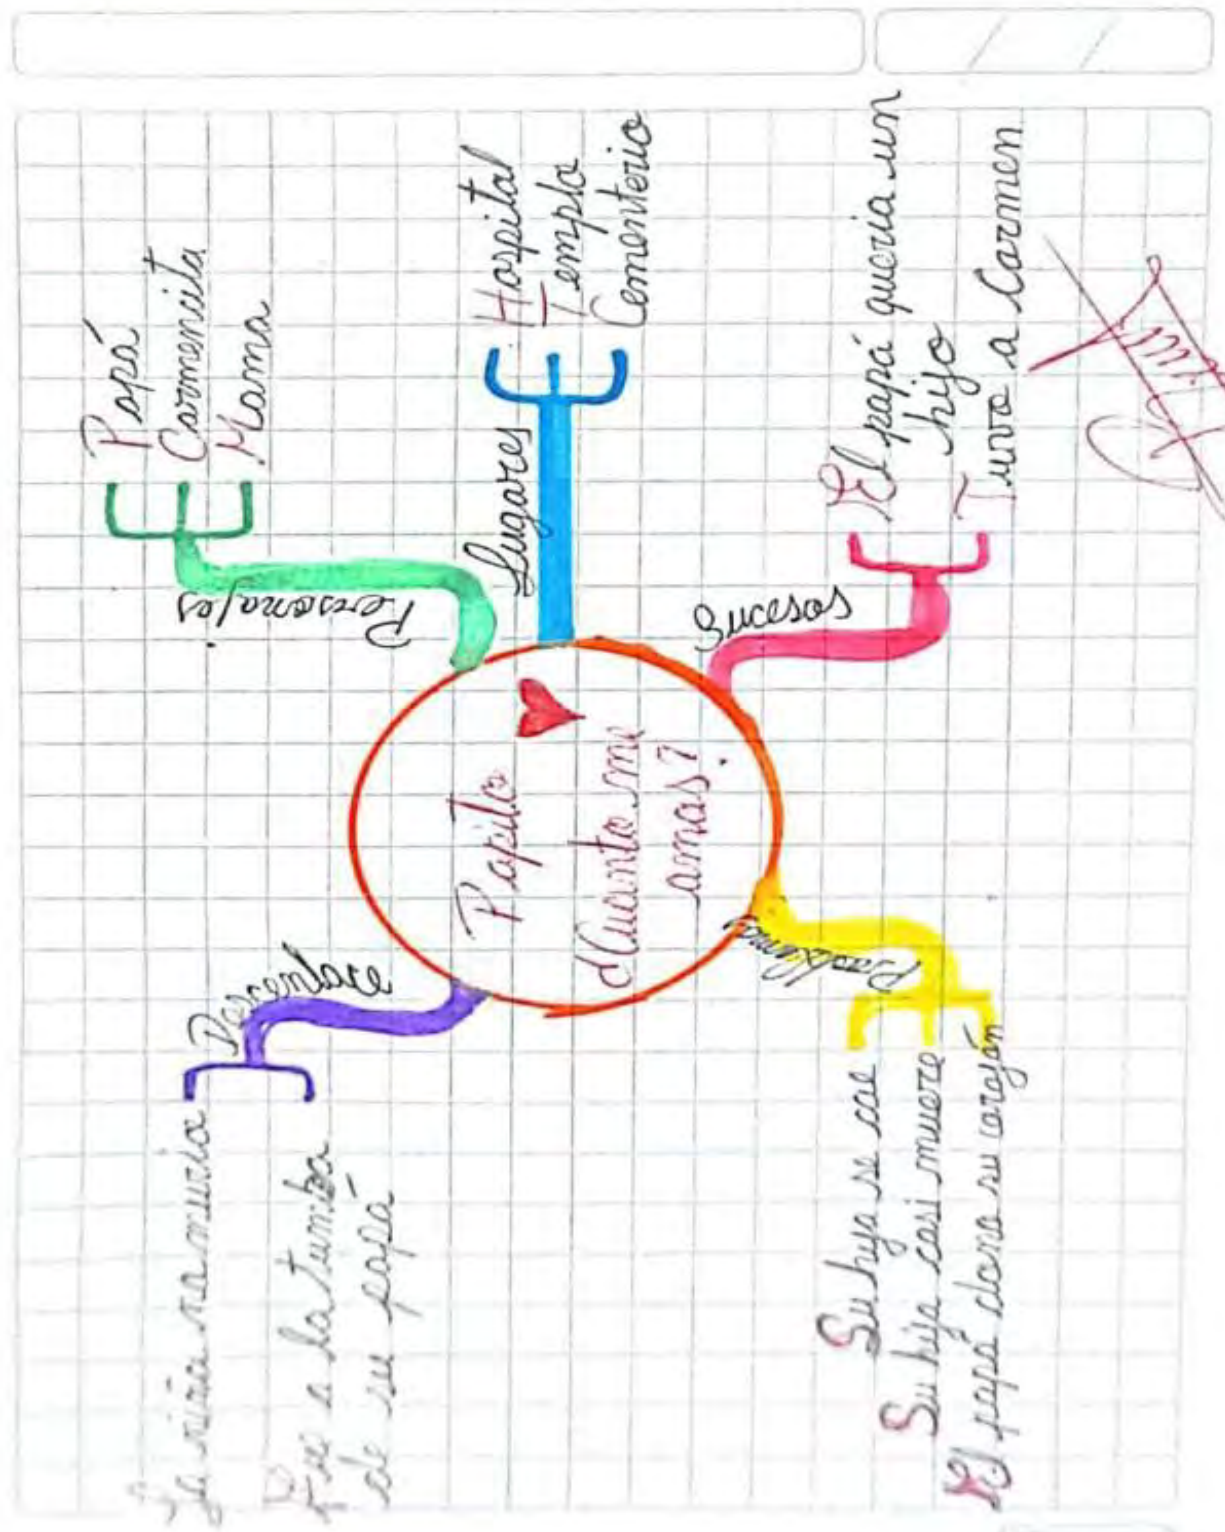 Papito
¿Cuanto me
amas?
Personajes
Papá
Carmencita
Mama
Lugares
Hospital
Templo
Cementerio
Sucesos
El papá queria un
hijo
Tuvo a Carmen
Problemas
Su hija se cae
Su hija casi muere
El papá dono su corazón
Desenlace
La niña no murio
Fue a la tumba
de su papá